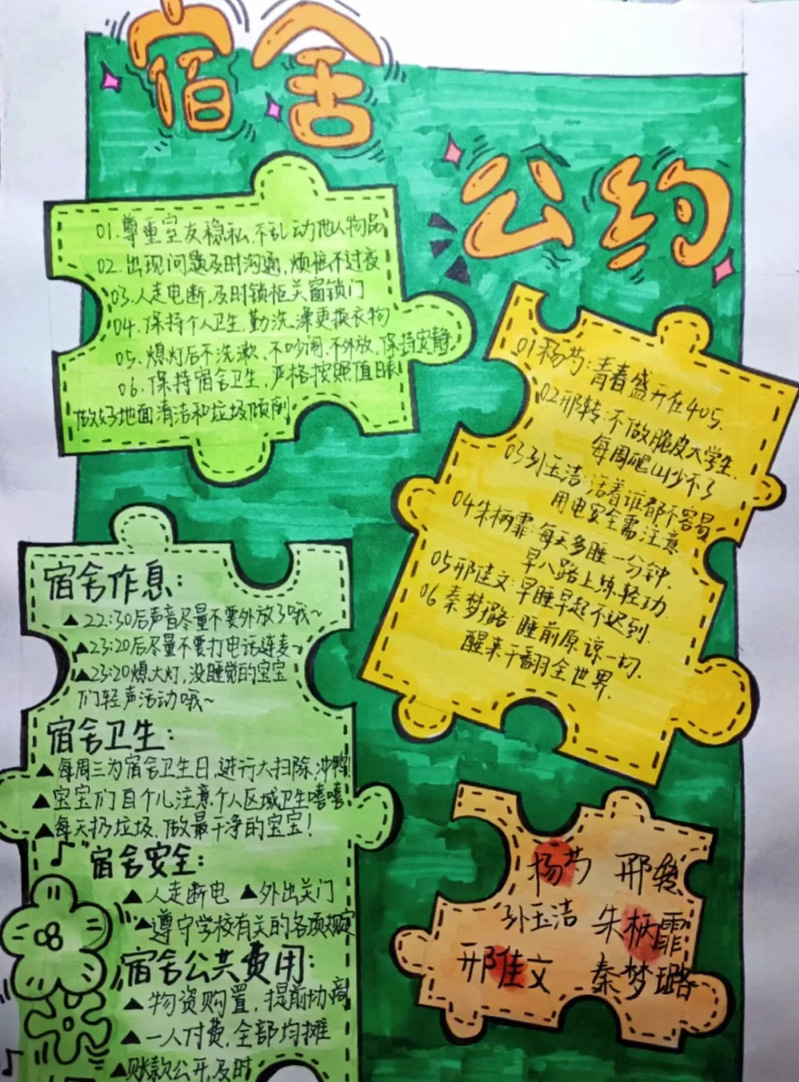 宿舍
公约
01.尊重室友稳私,不乱动他人物品
02.出现问题及时沟通,烦恼不过夜
03.人走电断,及时锁柜关窗锁门
04.保持个人卫生,勤洗澡更换衣物
05.熄灯后不洗漱、不吵闹、不外放,保持安静.
06.保持宿舍卫生,严格按照值日表
做好地面清洁和垃圾倾倒
01杨芍:青春盛开在405.
02邢转:不做脆皮大学生.
每周爬山少不了
03孙玉洁:活着谁都不容易
用电安全需注意.
04朱柄霏:每天多睡一分钟.
早八路上练轻功.
05邢佳文:早睡早起不迟到.
06秦梦璐:睡前原谅一切.
醒来干翻全世界.
宿舍作息:
▲22:30后声音尽量不要外放了哦~
▲23:20后尽量不要打电话连麦~
▲23:20熄大灯,没睡觉的宝宝
们轻声活动哦~
宿舍卫生:
▲每周三为宿舍卫生日,进行大扫除,冲鸭!
▲宝宝们自个儿注意个人区域卫生嘻嘻!
▲每天扔垃圾,做最干净的宝宝!
宿舍安全:
▲人走断电 ▲外出关门
▲遵守学校有关的各项规定
宿舍公共费用:
▲物资购置,提前协商
▲一人付费,全部均摊
▲账款公开,及时
杨芍 邢转
孙玉洁 朱柄霏
邢佳文 秦梦璐